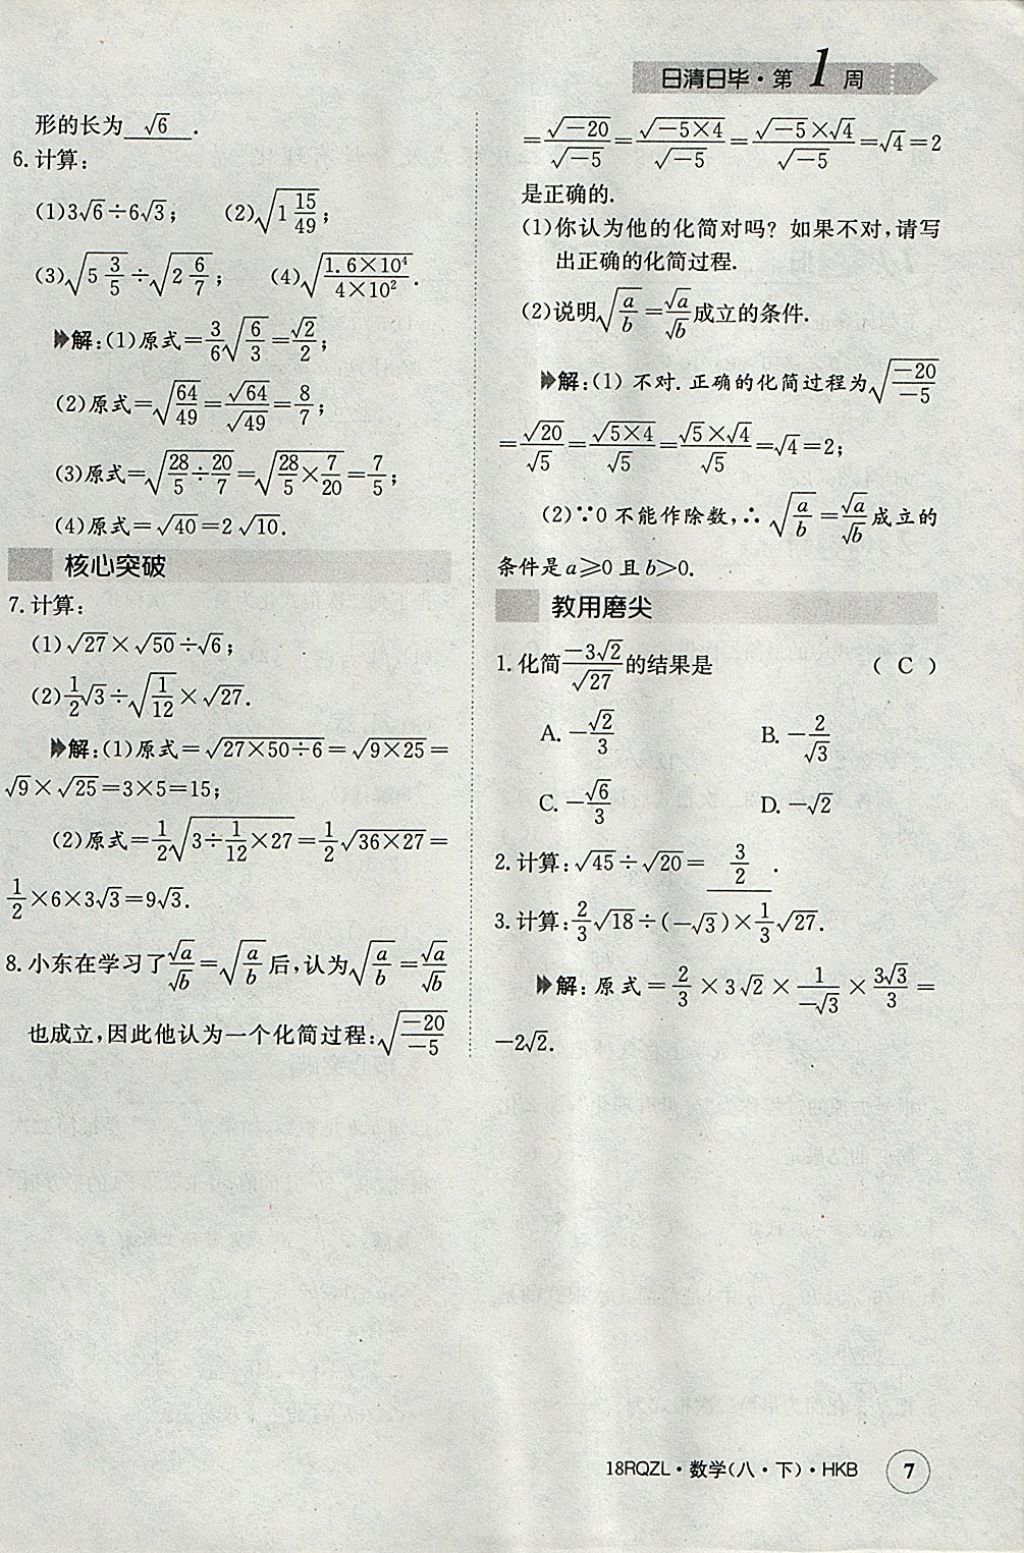 日清日毕·第1周
形的长为 √6 .
6.计算：
(1)3√6÷6√3； (2)√(1 15/49)；
(3)√(5 3/5)÷√(2 6/7)； (4)√((1.6×10⁴)/(4×10²)).
解：(1)原式=3/6√(6/3)=√2/2；
(2)原式=√(64/49)=√64/√49=8/7；
(3)原式=√(28/5÷20/7)=√(28/5×7/20)=7/5；
(4)原式=√40=2√10.
核心突破
7.计算：
(1)√27×√50÷√6；
(2)1/2√3÷√(1/12)×√27.
解：(1)原式=√(27×50÷6)=√(9×25)=
√9×√25=3×5=15；
(2)原式=1/2√(3÷1/12×27)=1/2√(36×27)=
1/2×6×3√3=9√3.
8.小东在学习了√a/√b=√(a/b)后，认为√(a/b)=√a/√b
也成立，因此他认为一个化简过程：√(-20/-5)
=√-20/√-5=√(-5×4)/√-5=(√-5×√4)/√-5=√4=2
是正确的.
(1)你认为他的化简对吗？如果不对，请写
出正确的化简过程.
(2)说明√(a/b)=√a/√b成立的条件.
解：(1) 不对.正确的化简过程为√(-20/-5)
=√20/√5=√(5×4)/√5=(√5×√4)/√5=√4=2；
(2)∵0不能作除数，∴√(a/b)=√a/√b成立的
条件是a≥0且b>0.
教用磨尖
1.化简(-3√2)/√27的结果是 ( C )
A.-√2/3 B.-2/√3
C.-√6/3 D.-√2
2.计算：√45÷√20= 3/2 .
3.计算：2/3√18÷(-√3)×1/3√27.
解：原式=2/3×3√2×1/(-√3)×(3√3)/3=
-2√2.
18RQZL·数学(八·下)·HKB 7